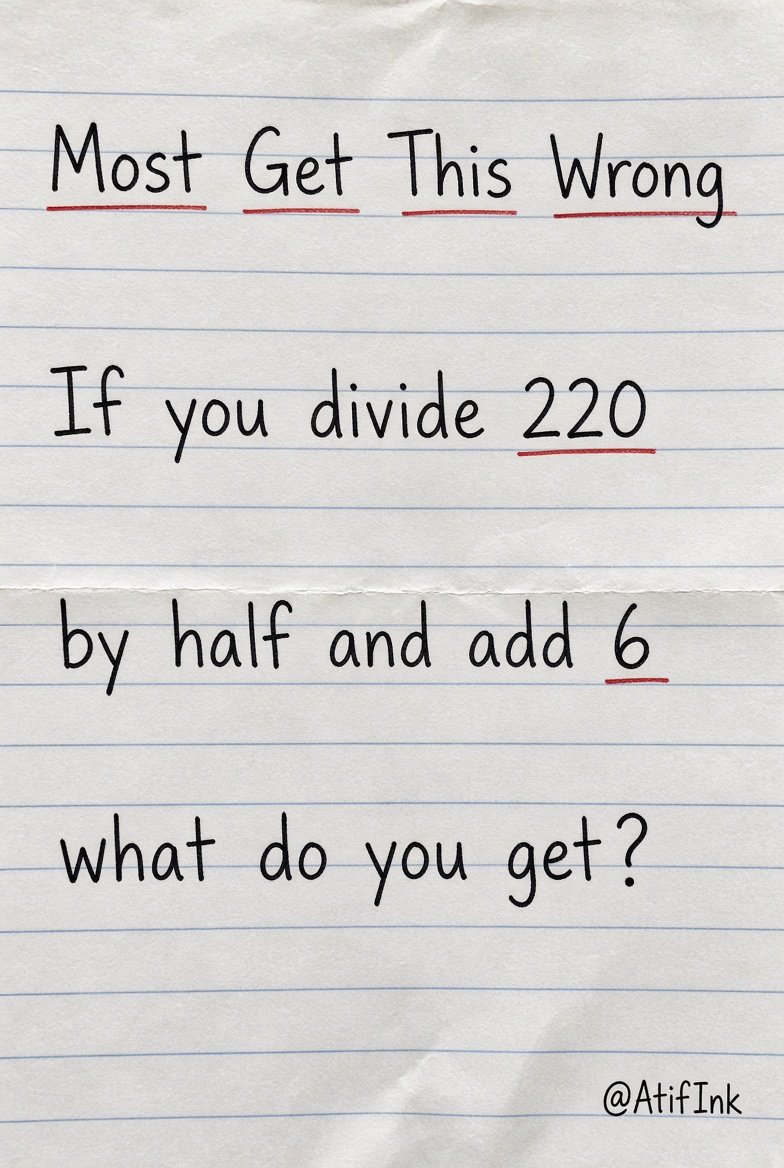 Most Get This Wrong
If you divide 220
by half and add 6
what do you get?
@AtifInk